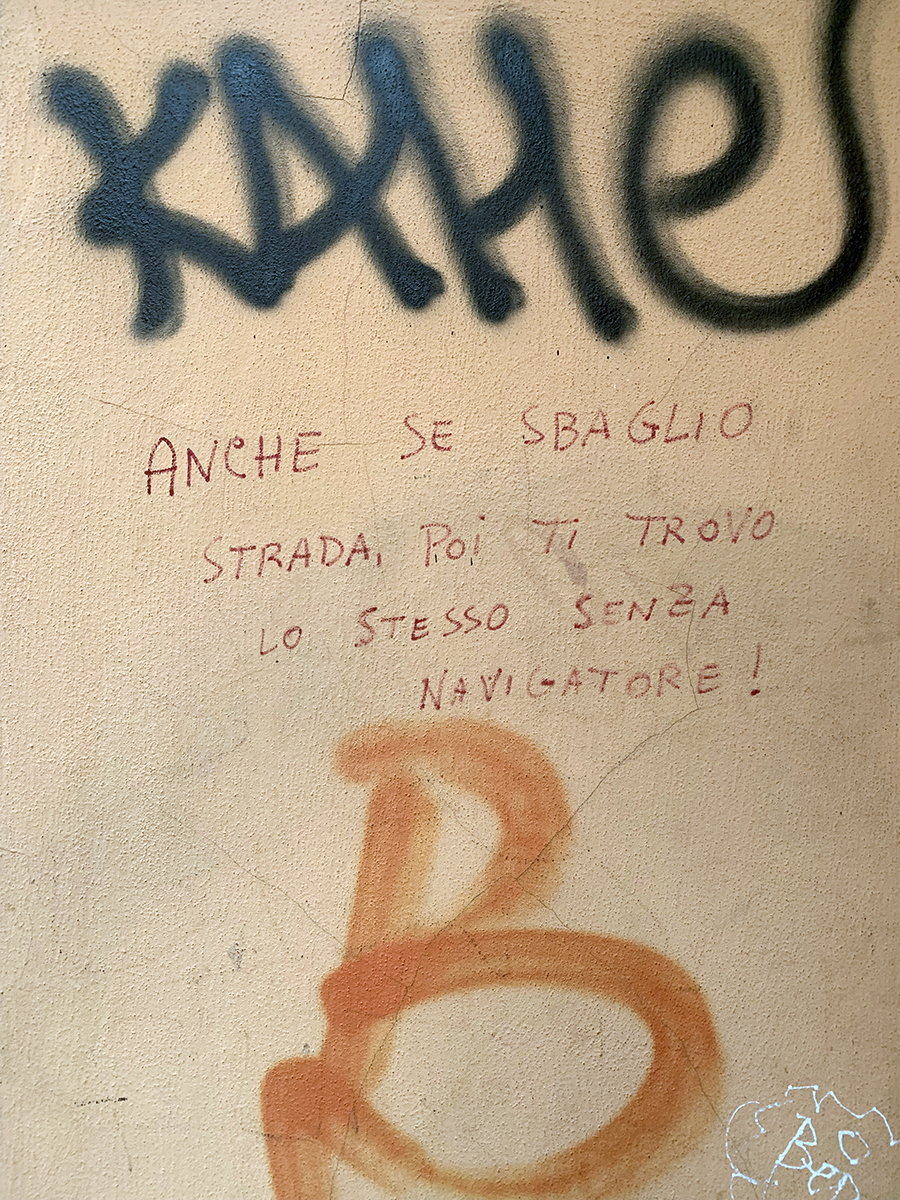 ANCHE SE SBAGLIO
STRADA, POi Ti TROVO
LO STESSO SENZA
NAVIGATORE!
B